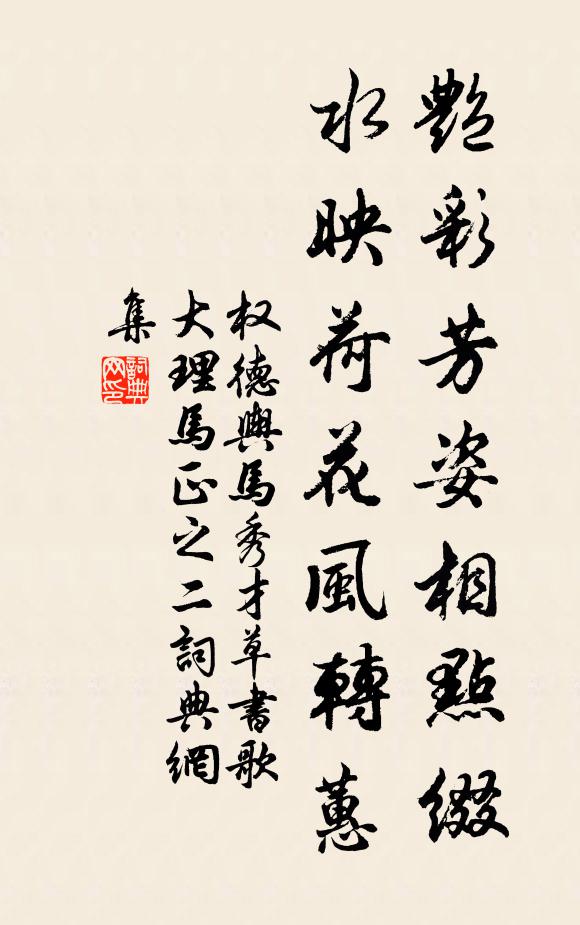 艷彩芳姿相點綴
水映荷花風轉蕙
权德輿馬秀才草書歌
大理馬正之二詞典網
集
詞典
网印